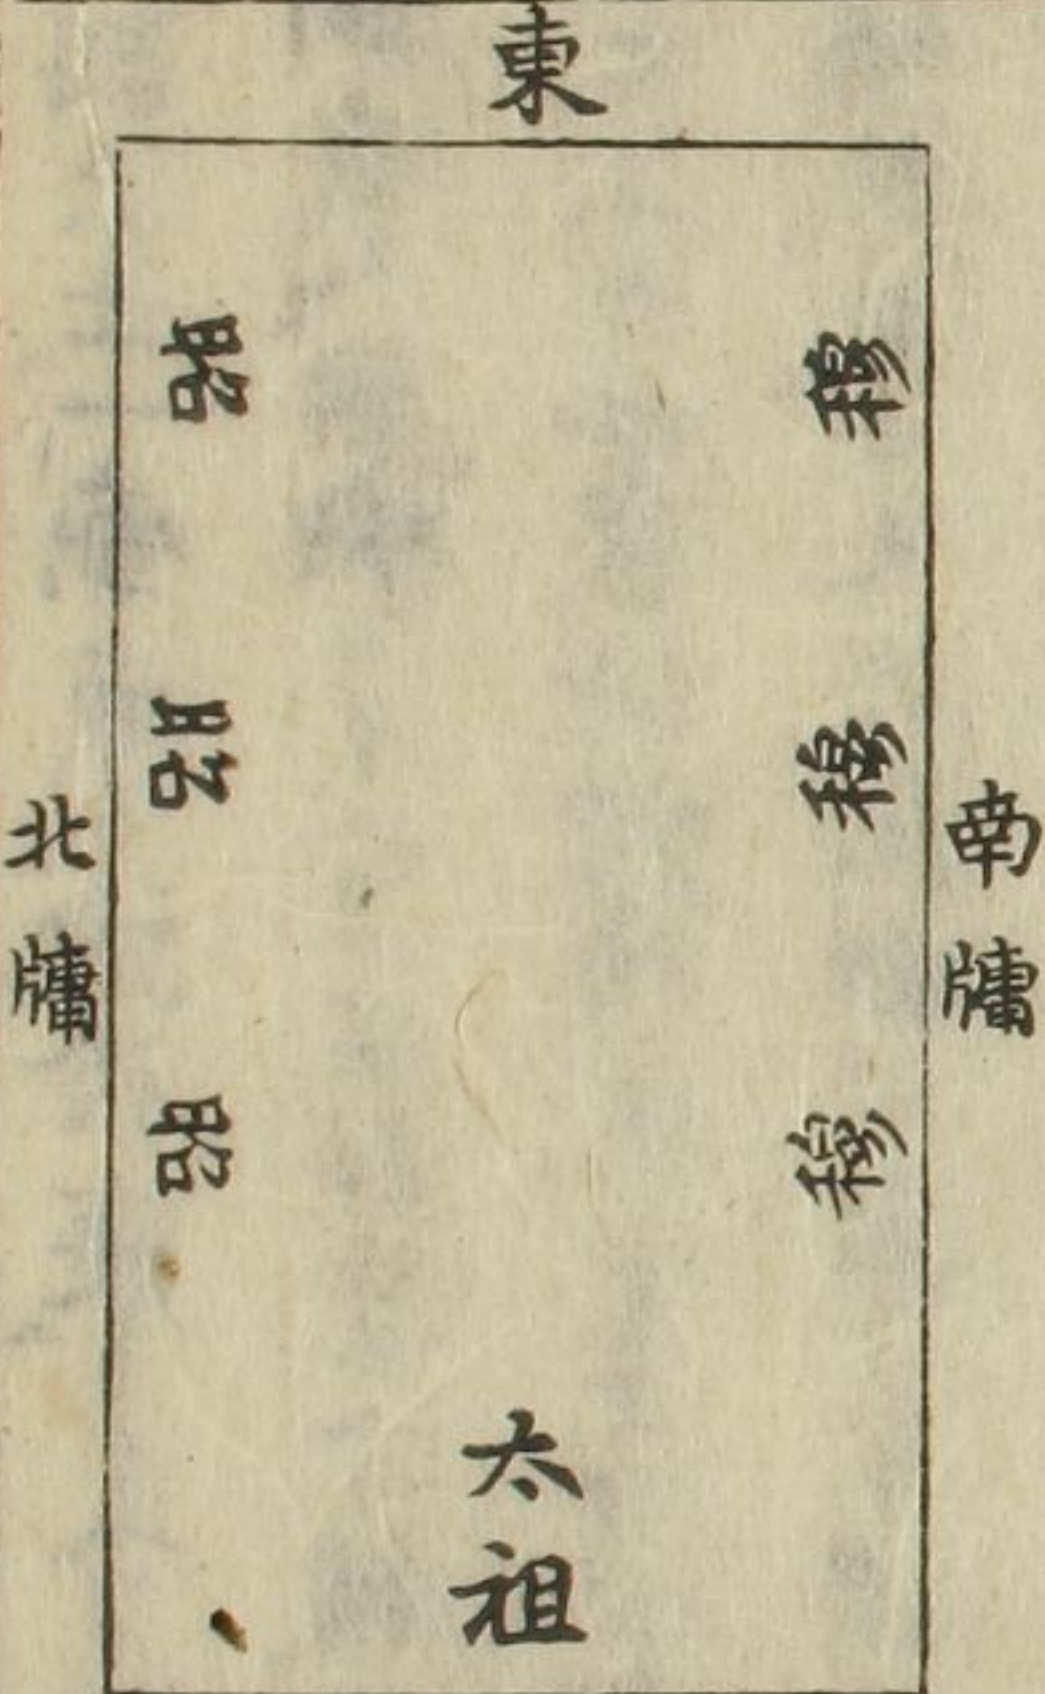 東
穆
穆
穆
南牗
昭
昭
昭
北牗
太祖